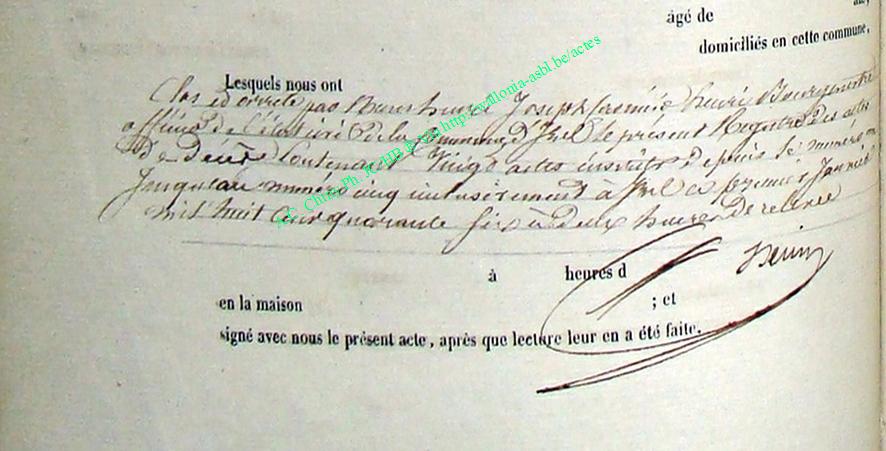 âgé de                ans,
domiciliés en cette commune,
Lesquels nous ont
Clos et arrêté par Nous Joseph henri Bourgmestre
officier de l'état civil de la Commune d' le présent Registre des actes
de décès Contenant Vingt actes inscrits depuis le numéro un
Jusqu'au numéro cinq inclusivement à ce premier Janvier
mil huit cent quarante six à deux heures de relevée
Henin
à                heures d
en la maison                ; et
signé avec nous le présent acte, après que lecture leur en a été faite.
http://wallonia-asbl.be/actes